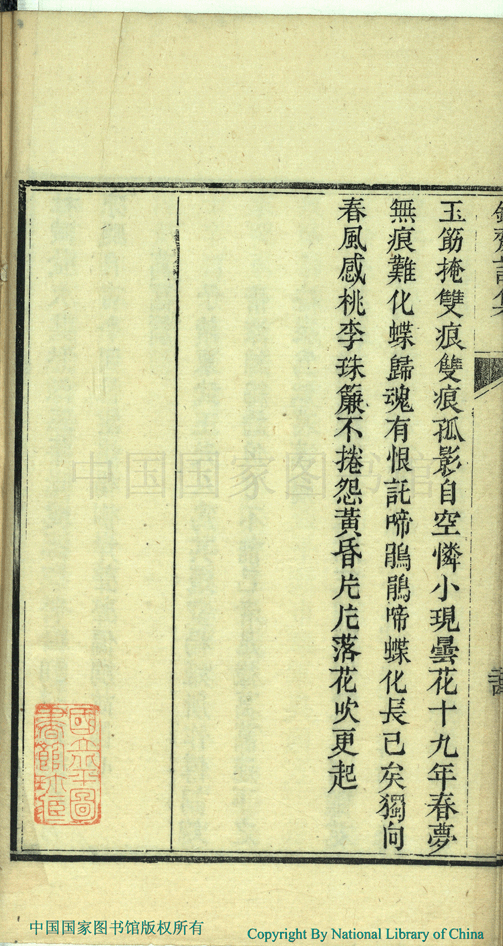 玉筯掩雙痕雙痕孤影自空憐小現曇花十九年春夢
無痕難化蝶歸魂有恨託啼鵑鵑啼蝶化長已矣獨向
春風感桃李珠簾不捲怨黃昏片片落花吹更起
中国国家图书馆
中国国家图书馆版权所有
Copyright By National Library of China